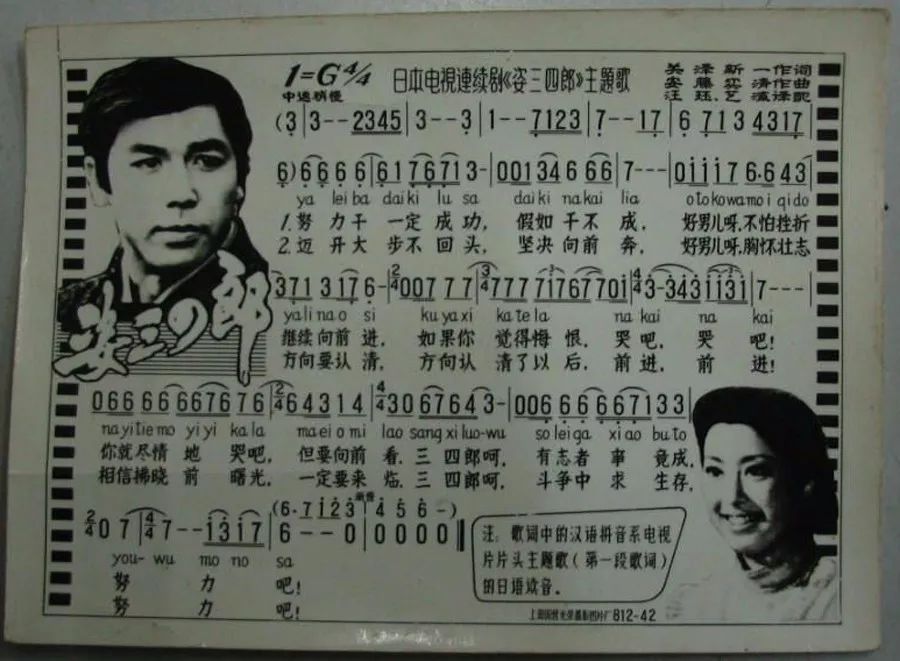 1=G 4/4
中速稍慢
日本电視連续剧《姿三四郎》主题歌
关泽新一作词
安藤实清作曲
汪珏、艺瀛译配
(3|3--2345|3--3|1--7123|7--17|6 713 4317|
6)6666|617671 3-|00134 666|7---|01117 6·643|
ya leiba daiki lu sa daiki nakai lia otokowamoiqido
1.努力干一定成功，假如干不成，好男儿呀，不怕挫折
2.迈开大步不回头，坚决向前奔，好男儿呀，胸怀壮志
姿三四郎
371 317 6-|2/4 007 77|3/4 777 7176770i|4/4 3-343 i i3i|7---|
yalinao si kuyaxi katela nakai na kai
继续向前进，如果你觉得悔恨，哭吧，哭吧！
方向要认清，方向认清了以后，前进，前进！
066 666 667676|2/4 64314|4/4 306764 3-|006 66667133|
nayitiemo yiyi kala maeiomi lao sangxiluo-wu soleiga xiao buto
你就尽情地哭吧，但要向前看，三四郎呵，有志者事竟成，
相信拂晓前曙光，一定要来临，三四郎呵，斗争中求生存，
渐慢
(6·7123|456-)
2/4 07|4/4 7--i3i7|6--0|0000‖
you-wu mo no sa
努力吧！
努力吧！
注：歌词中的汉语拼音系电视
片片头主题歌（第一段歌词）
的日语读音。
812-42